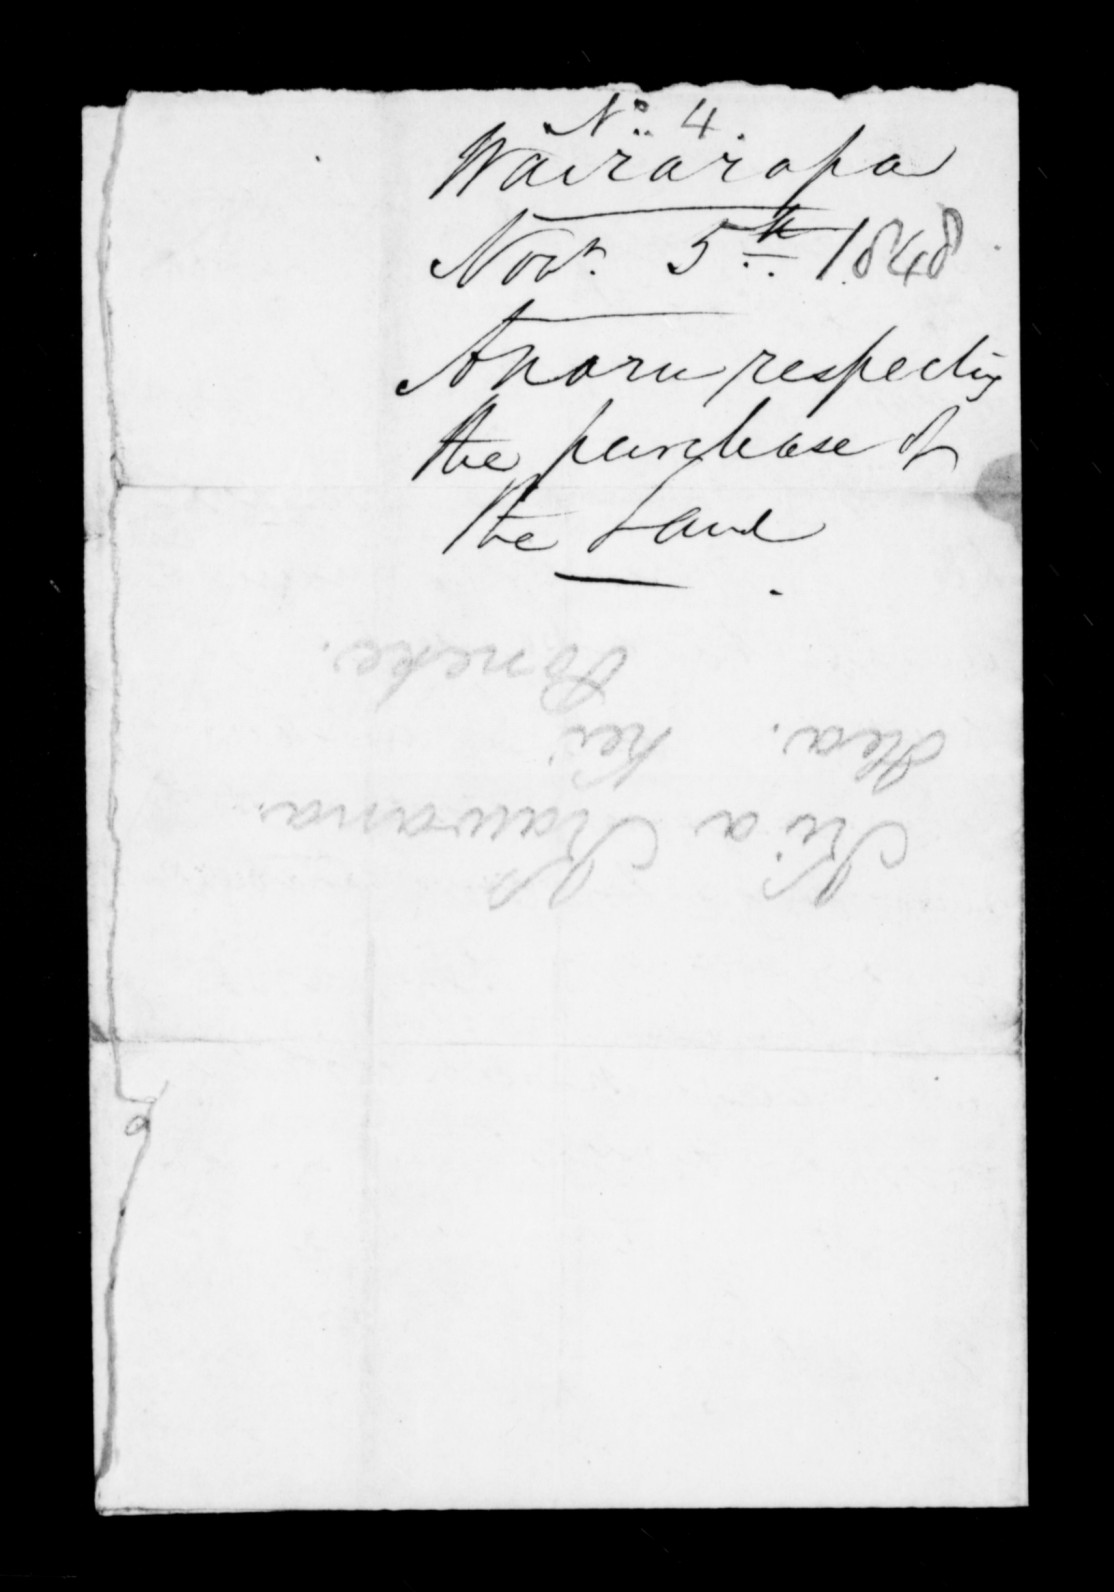 No. 4.
Wairarapa
Novr. 5th. 1848
Anaru respecting
the purchase of
the Land
Ki a Kawana.
Kei
Poneke.